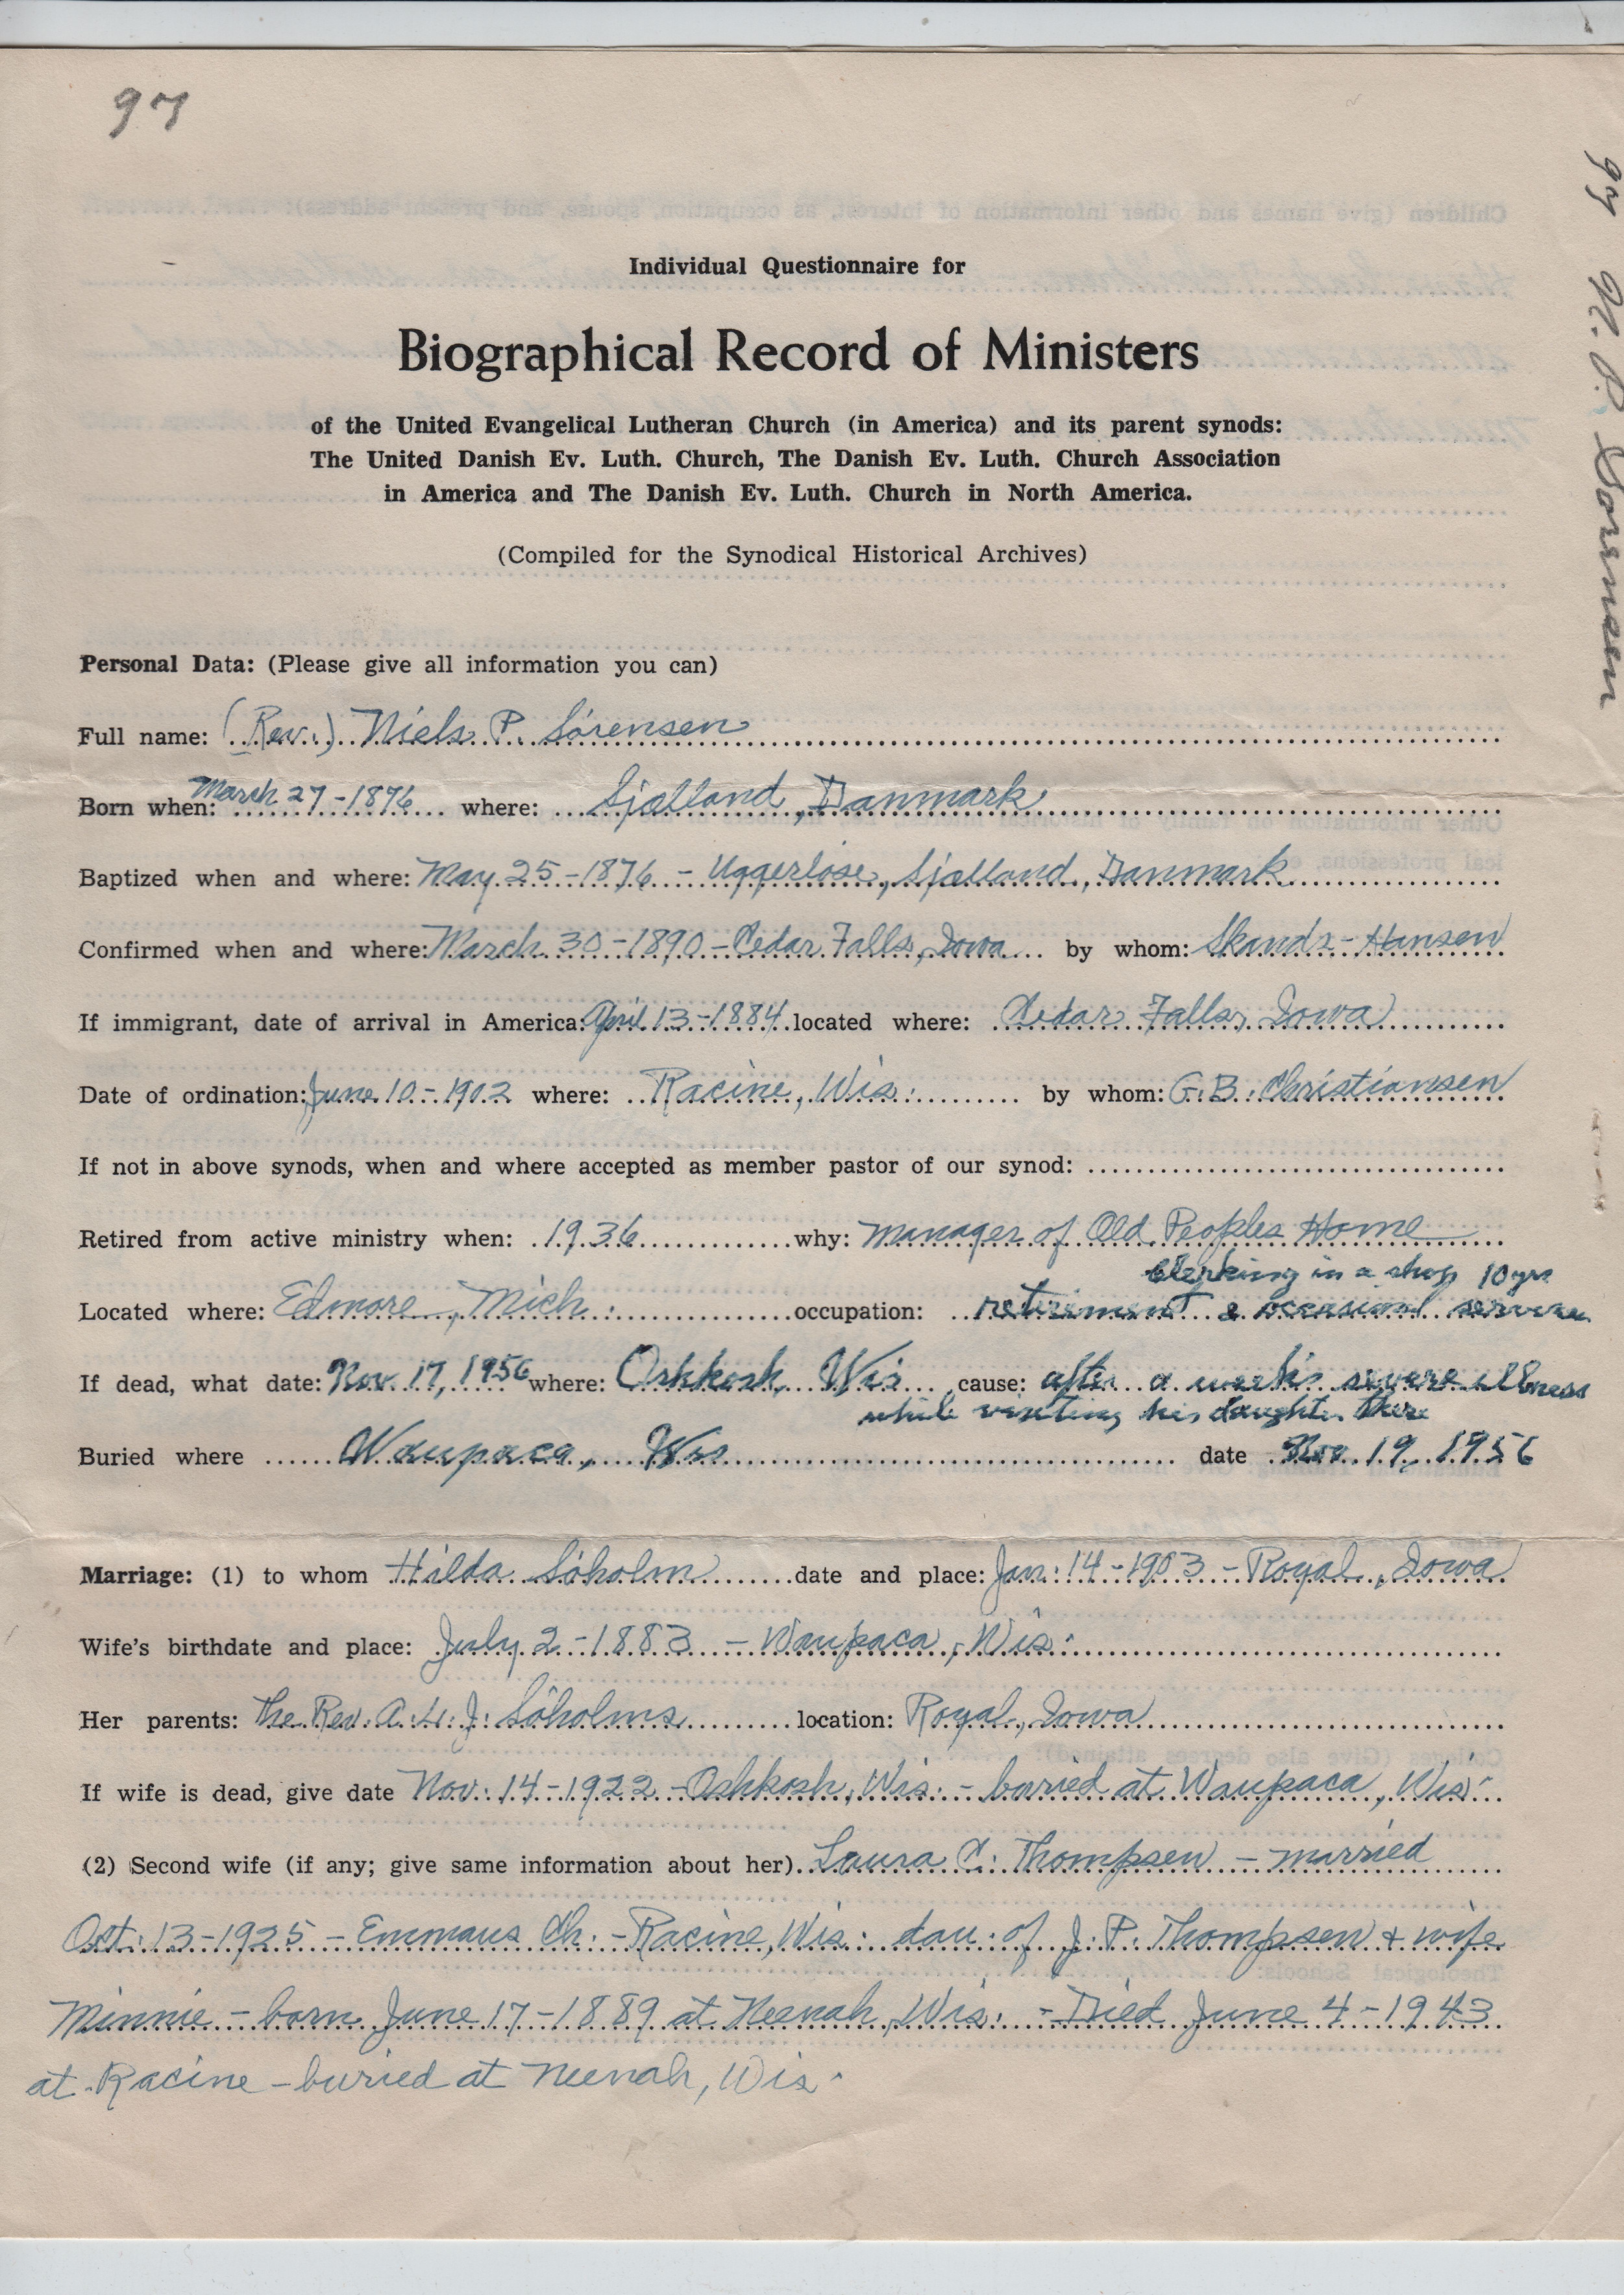 97
97 N. P. Sorensen
Individual Questionnaire for
Biographical Record of Ministers
of the United Evangelical Lutheran Church (in America) and its parent synods:
The United Danish Ev. Luth. Church, The Danish Ev. Luth. Church Association
in America and The Danish Ev. Luth. Church in North America.
(Compiled for the Synodical Historical Archives)
Personal Data: (Please give all information you can)
Full name: (Rev.) Niels P. Sörensen
Born when: March 27-1876 where: Sjælland, Danmark
Baptized when and where: May 25-1876 - Uggerlöse, Sjælland, Danmark
Confirmed when and where: March 30-1890-Cedar Falls, Iowa by whom: Skands-Hansen
If immigrant, date of arrival in America: April 13-1884 located where: Cedar Falls, Iowa
Date of ordination: June 10-1902 where: Racine, Wis. by whom: G. B. Christiansen
If not in above synods, when and where accepted as member pastor of our synod:
Retired from active ministry when: 1936 why: Manager of Old Peoples Home
Clerking in a shop 10 yrs
Located where: Edmore, Mich. occupation: retirement & occasional services
If dead, what date: Nov. 17, 1956 where: Oshkosh, Wis cause: after a week's severe illness
while visiting his daughter there
Buried where Waupaca, Wis date Nov. 19, 1956
Marriage: (1) to whom Hilda Söholm date and place: Jan. 14-1903-Royal, Iowa
Wife's birthdate and place: July 2-1883 - Waupaca, Wis.
Her parents: The Rev. A. L. J. Söholms location: Royal, Iowa
If wife is dead, give date Nov. 14-1922-Oshkosh, Wis. - buried at Waupaca, Wis.
(2) Second wife (if any; give same information about her) Laura C. Thompsen - married
Oct. 13-1925 - Emmaus Ch. - Racine, Wis. dau. of J. P. Thompsen & wife
Minnie - born June 17-1889 at Neenah, Wis. - Died June 4-1943
at Racine - buried at Neenah, Wis.